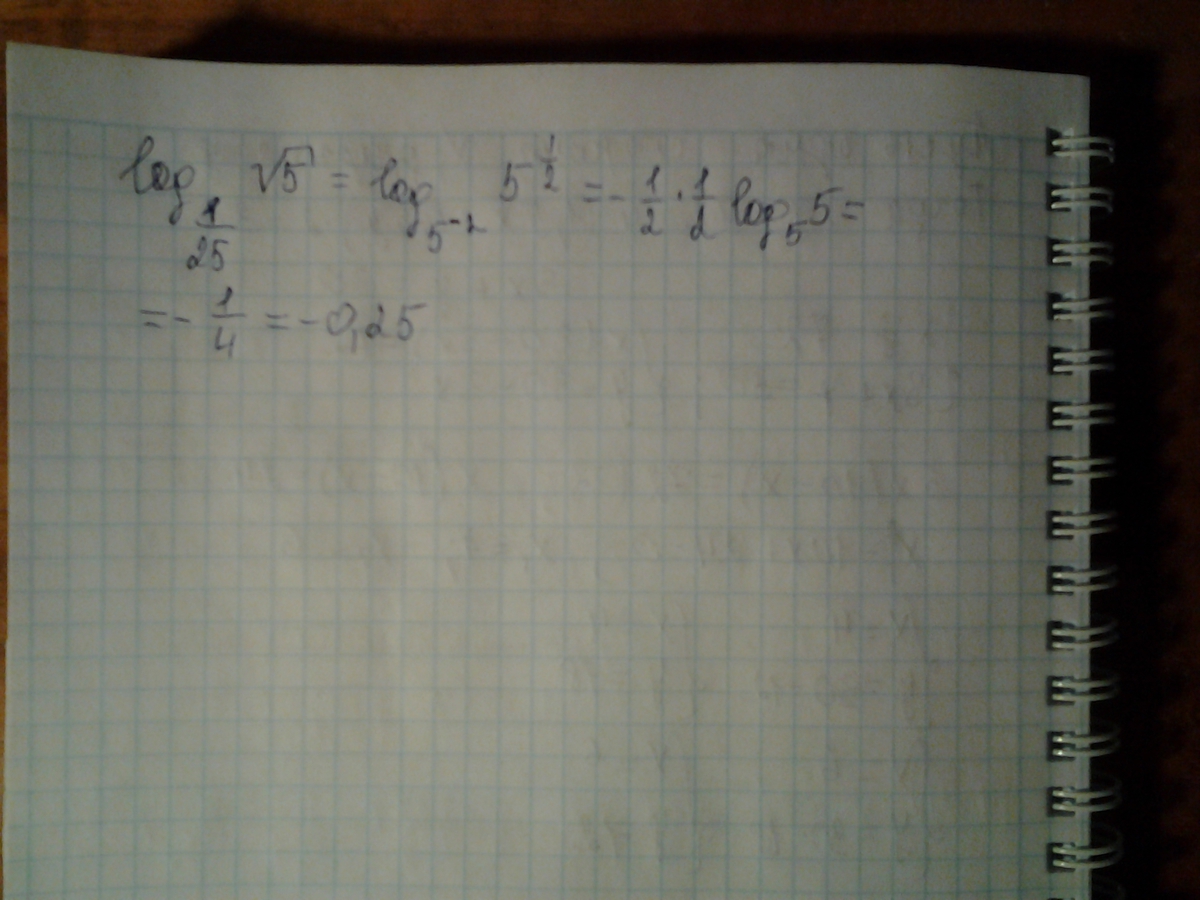 log_{1/25} √5 = log_{5^{-2}} 5^{1/2} = - 1/2 · 1/2 log_5 5 =
= - 1/4 = -0,25